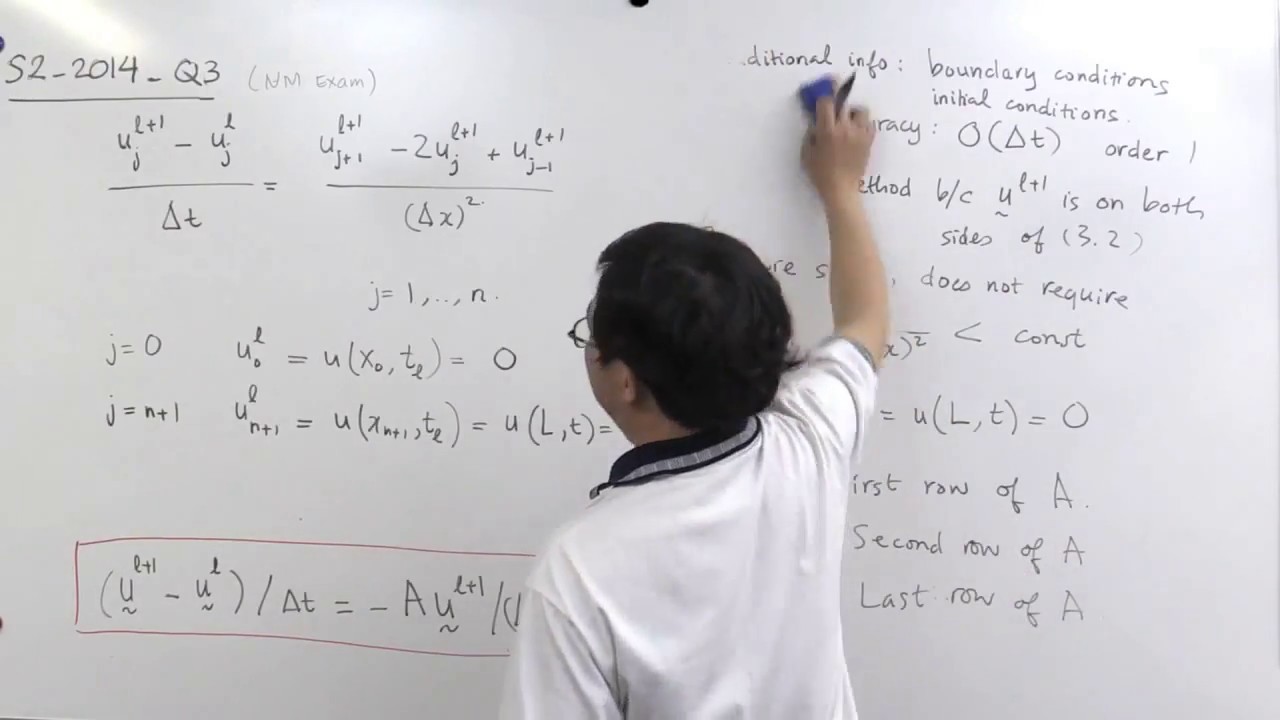 S2-2014-Q3 (NM Exam)
u_j^{l+1} - u_j^l / Δt = u_{j+1}^{l+1} - 2u_j^{l+1} + u_{j-1}^{l+1} / (Δx)^2
j= 1, .., n.
j=0 u_0^l = u(x_0, t_l) = 0
j=n+1 u_{n+1}^l = u(x_{n+1}, t_l) = u(L,t)=
(u^{l+1} - u^l) / Δt = - A u^{l+1} /(
ditional info: boundary conditions
initial conditions.
racy: O(Δt) order 1
ethod b/c u^{l+1} is on both
sides of (3.2)
re s , does not require
x)^2 < const
= u(L,t) = 0
irst row of A.
Second row of A
Last row of A